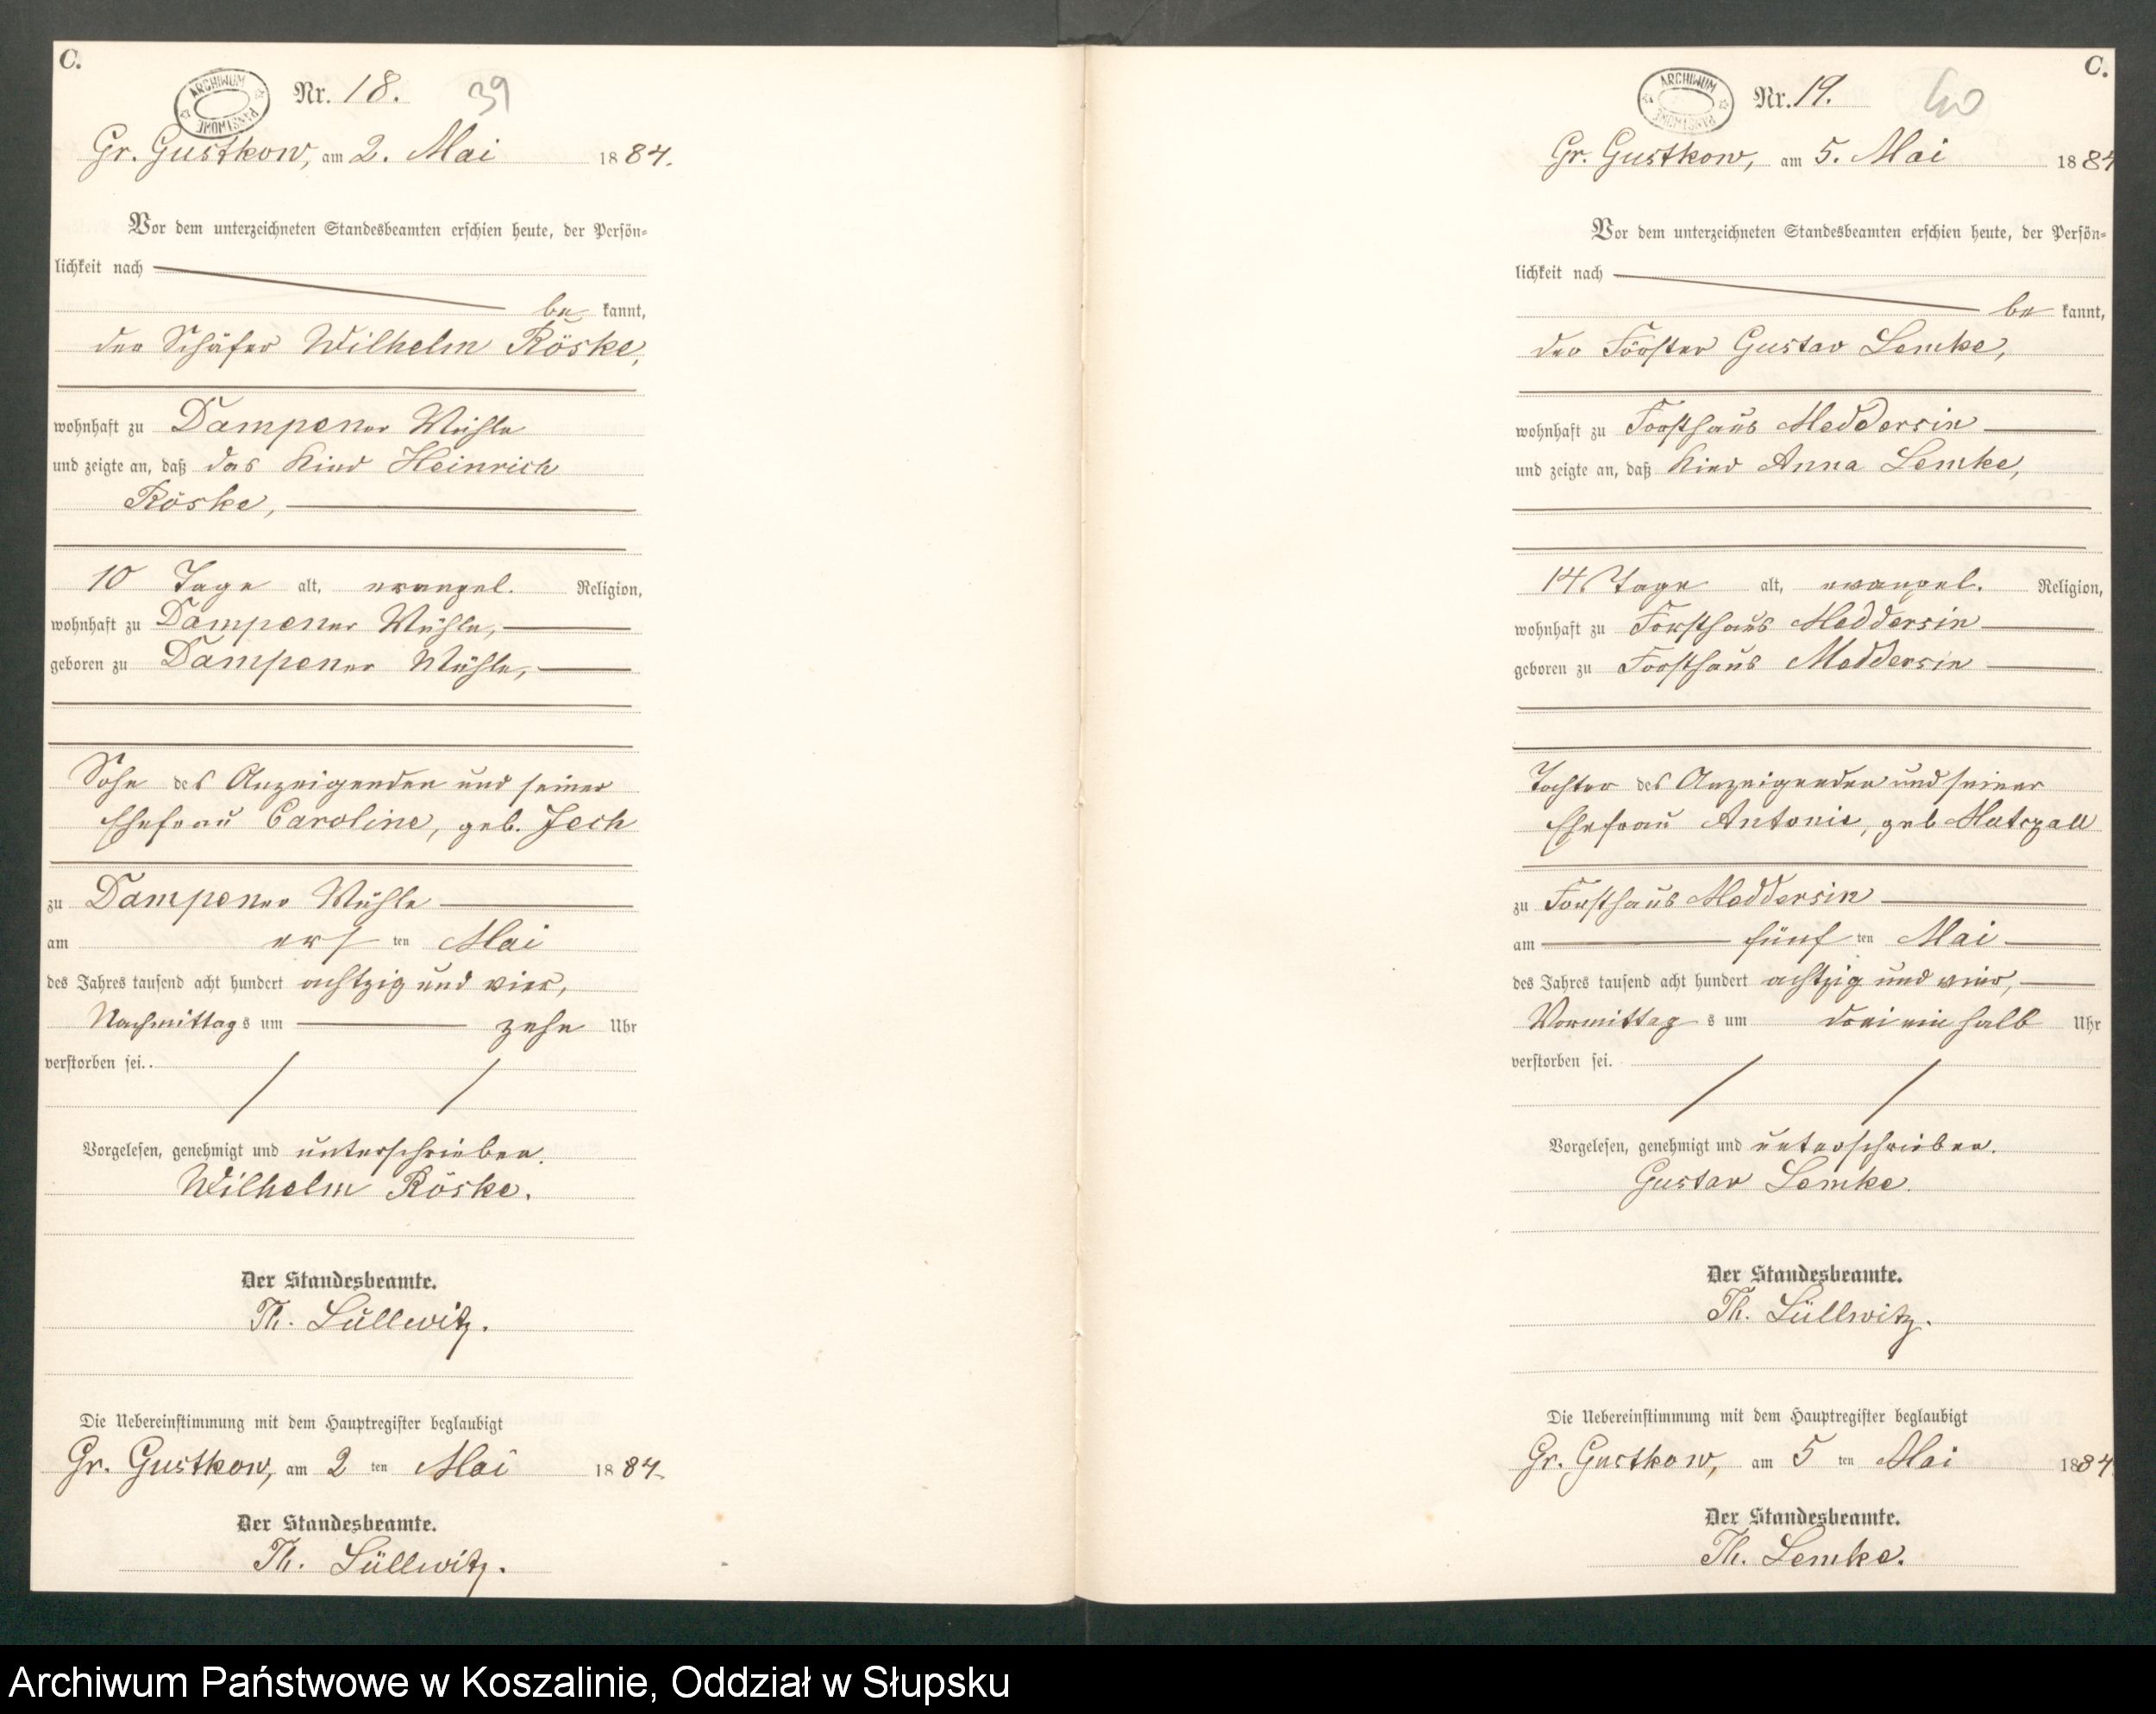 C.
ARCHIWUM PAŃSTWOWE
Nr. 18. 39
Gr. Gustkow, am 2. Mai 1884.
Vor dem unterzeichneten Standesbeamten erschien heute, der Persön-
lichkeit nach
be kannt,
der Schäfer Wilhelm Röske,
wohnhaft zu Dampener Mühle
und zeigte an, daß das Kind Heinrich
Röske,
10 Tage alt, evangel. Religion,
wohnhaft zu Dampener Mühle,
geboren zu Dampener Mühle,
Sohn des Anzeigenden und seiner
Ehefrau Caroline, geb. Jech
zu Dampener Mühle
am ers ten Mai
des Jahres tausend acht hundert achtzig und vier,
Nachmittags um zehn Uhr
verstorben sei.
Vorgelesen, genehmigt und unterschrieben.
Wilhelm Röske.
Der Standesbeamte.
Th. Lüllwitz.
Die Uebereinstimmung mit dem Hauptregister beglaubigt
Gr. Gustkow, am 2 ten Mai 1884.
Der Standesbeamte.
Th. Lüllwitz.
C.
ARCHIWUM PAŃSTWOWE
Nr. 19. 40
Gr. Gustkow, am 5. Mai 1884
Vor dem unterzeichneten Standesbeamten erschien heute, der Persön-
lichkeit nach
be kannt,
der Förster Gustav Lemke,
wohnhaft zu Forsthaus Meddersin
und zeigte an, daß Kind Anna Lemke,
14 Tage alt, evangel. Religion,
wohnhaft zu Forsthaus Meddersin
geboren zu Forsthaus Meddersin
Tochter des Anzeigenden und seiner
Ehefrau Antonie, geb Mutzall
zu Forsthaus Meddersin
am fünf ten Mai
des Jahres tausend acht hundert achtzig und vier,
Vormittag s um drei ein halb Uhr
verstorben sei.
Vorgelesen, genehmigt und unterschrieben.
Gustav Lemke.
Der Standesbeamte.
Th. Lüllwitz.
Die Uebereinstimmung mit dem Hauptregister beglaubigt
Gr. Gustkow, am 5 ten Mai 1884
Der Standesbeamte.
Th. Lemke.
Archiwum Państwowe w Koszalinie, Oddział w Słupsku